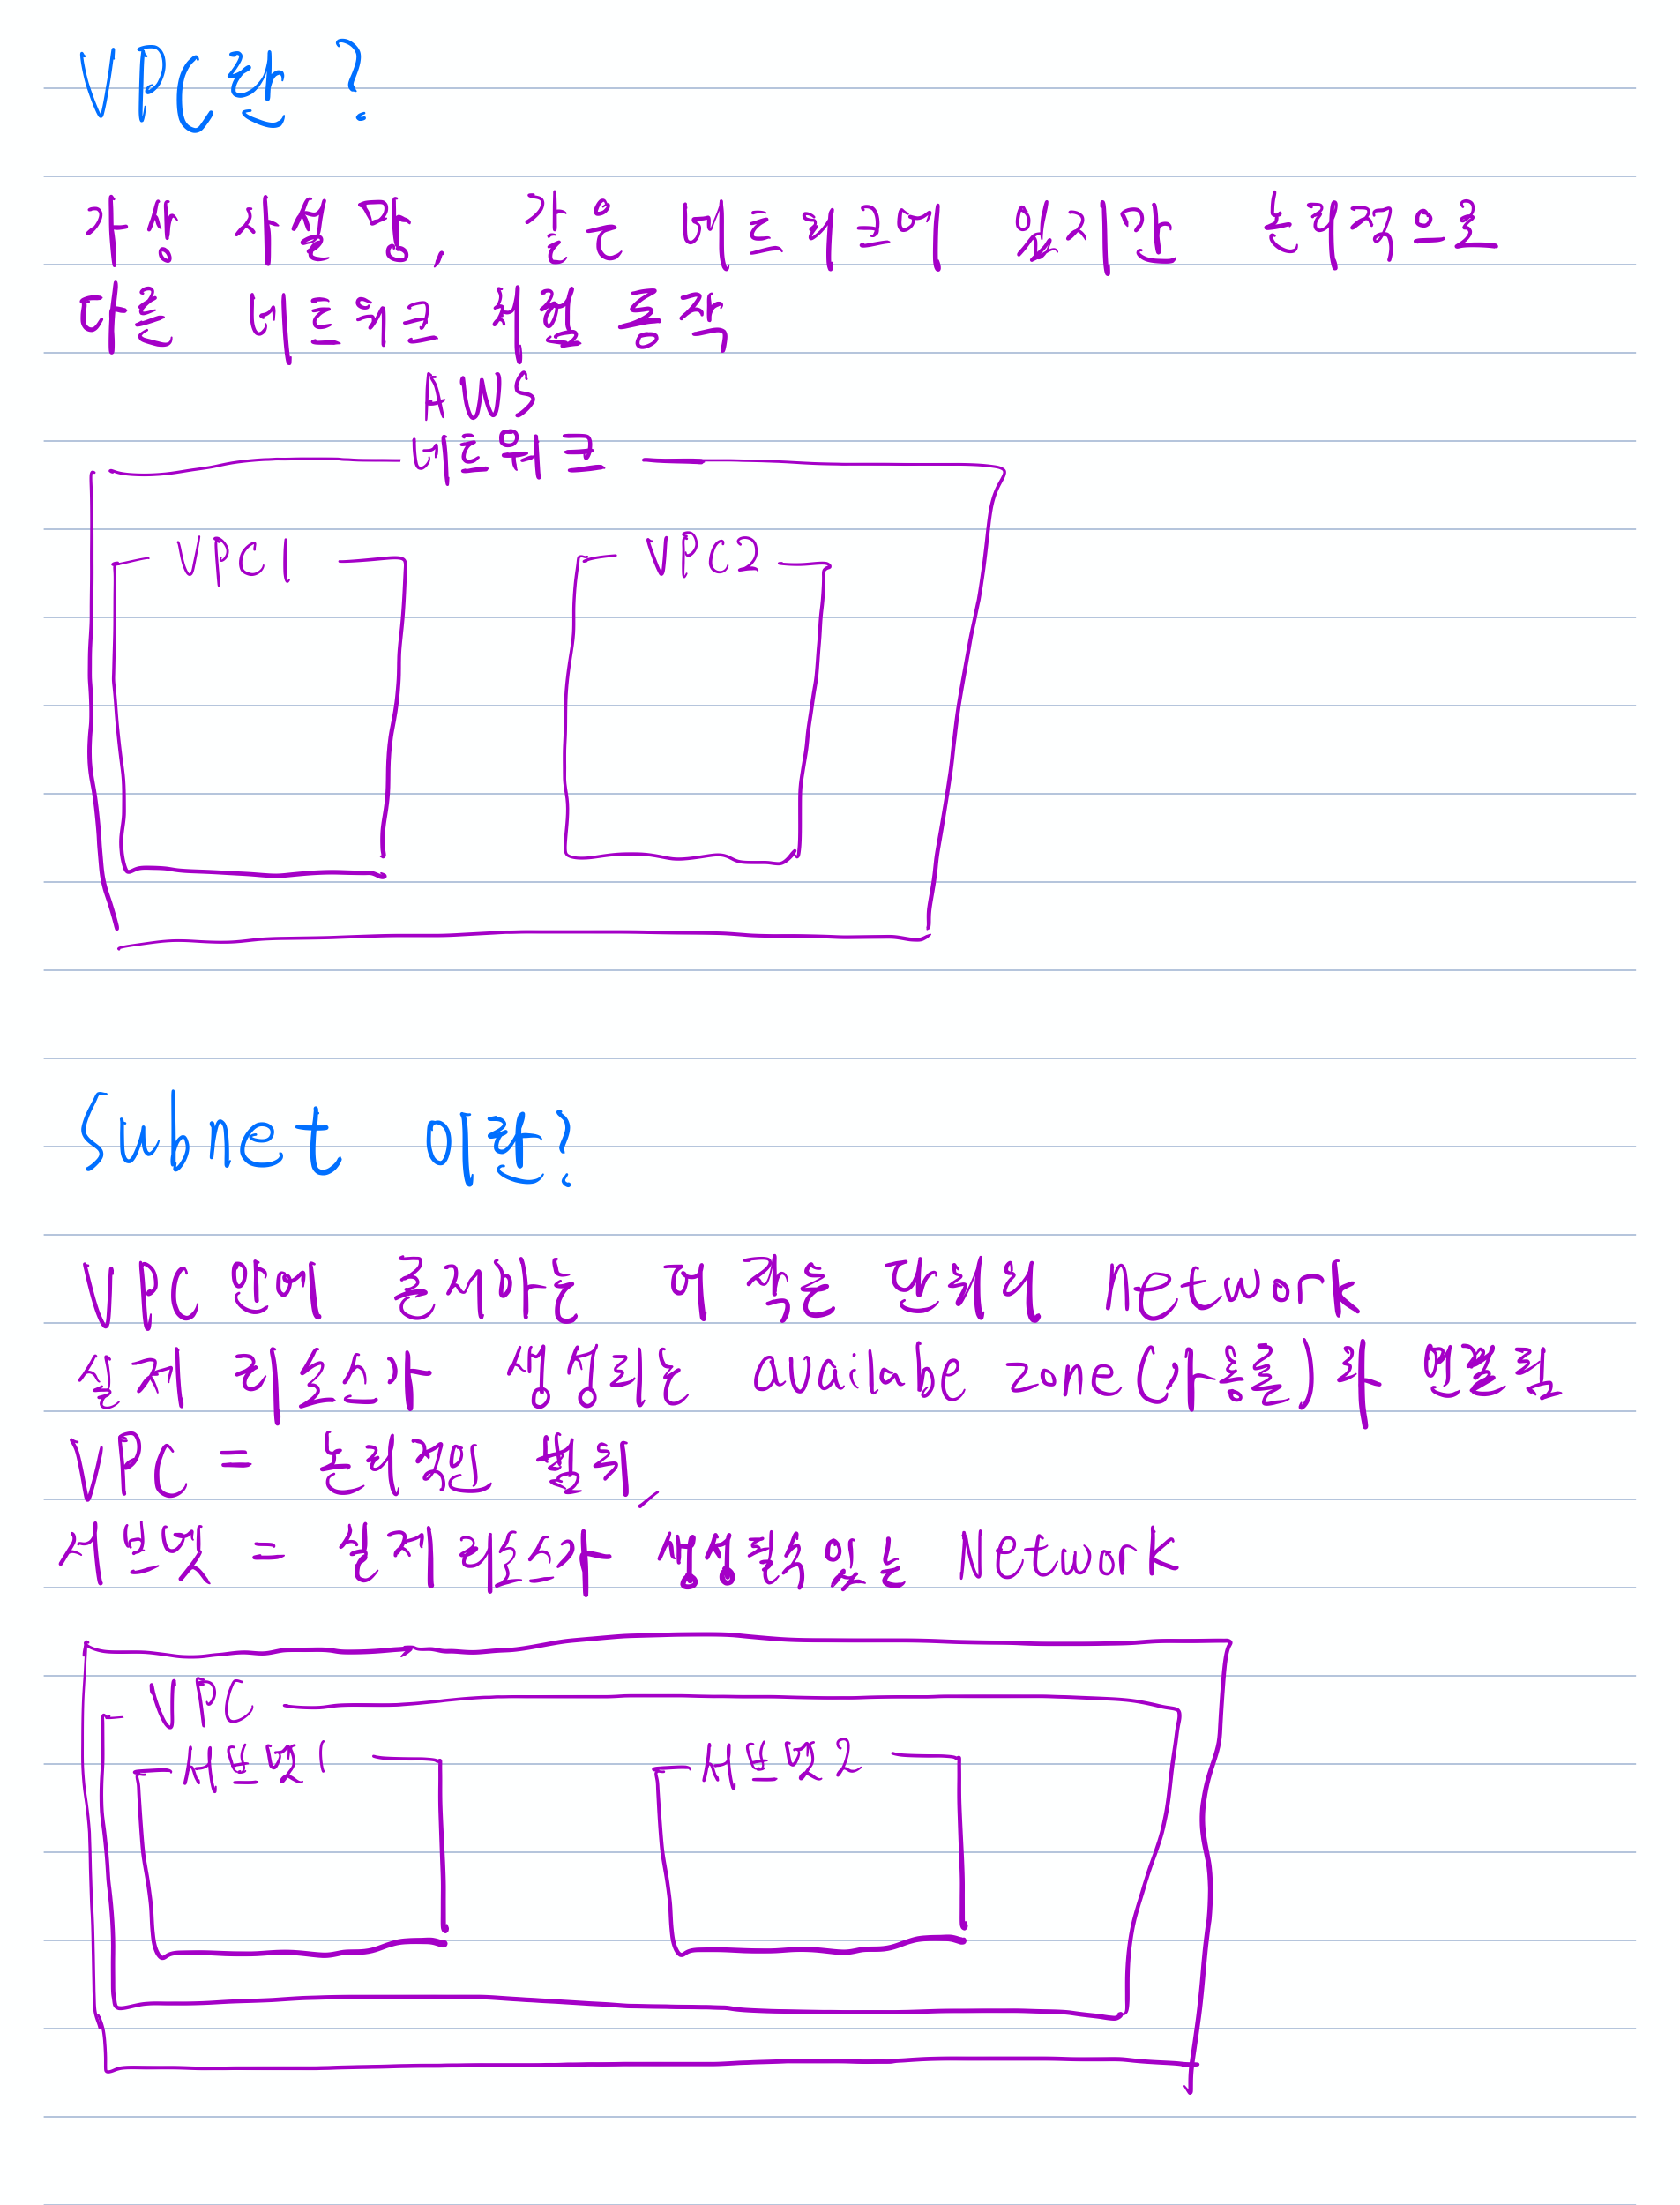 VPC란?
가상 사설망, 같은 네트워크에 있지만 논리적으로
다른 네트워크 처럼 동작
AWS
네트워크
VPC1
VPC2
Subnet 이란?
VPC 안에 존재하는 더 작은 단위의 network
실제 리소스가 생성되는 availabe zone(다음줄)과 연결됨
VPC = 논리적인 범위,
서브넷 = 실제 리소스가 생성될수 있는 Network
VPC
서브넷1
서브넷2